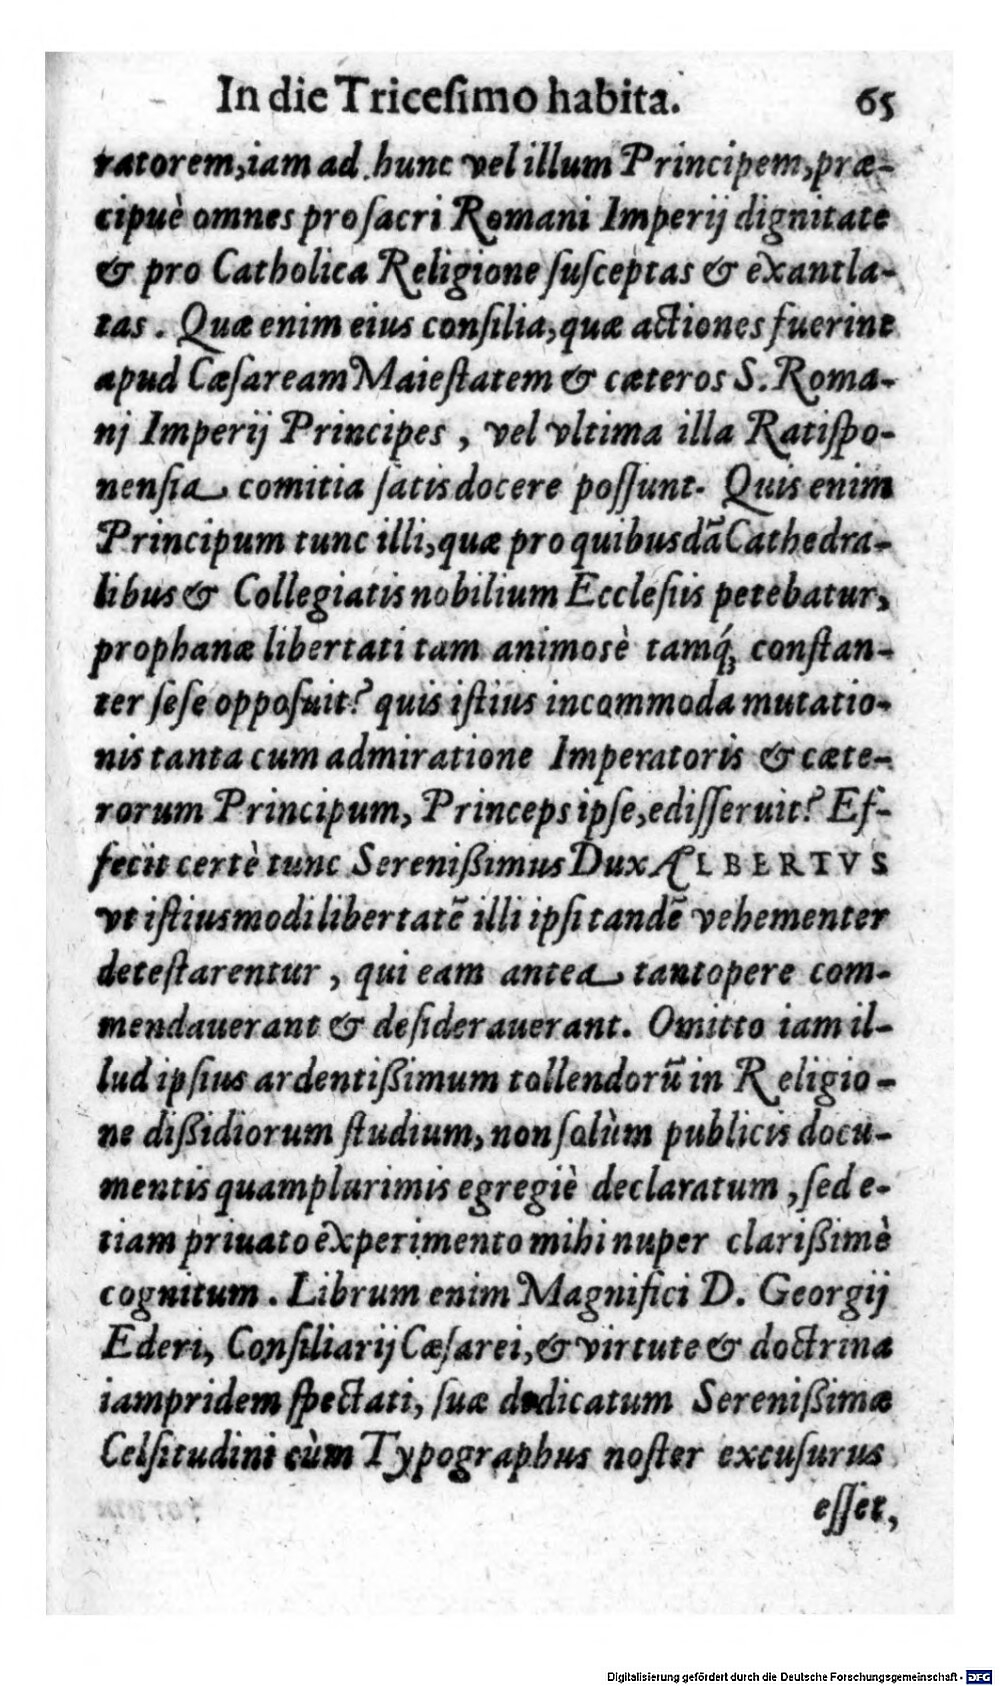 In die Triceſimo habita. 65
ratorem, iam ad hunc vel illum Principem, præ-
cipuè omnes pro ſacri Romani Imperij dignitate
& pro Catholica Religione ſuſceptas & exantla-
tas. Quæ enim eius conſilia, quæ actiones fuerint
apud Cæſaream Maieſtatem & cæteros S. Roma-
nj Imperij Principes, vel vltima illa Ratiſpo-
nenſia comitia ſatis docere poſſunt. Quis enim
Principum tunc illi, quæ pro quibusdã Cathedra-
libus & Collegiatis nobilium Eccleſiis petebatur,
prophanæ libertati tam animosè tamq́; conſtan-
ter ſeſe oppoſuit? quis iſtius incommoda mutatio-
nis tanta cum admiratione Imperatoris & cæte-
rorum Principum, Princeps ipſe, ediſſeruit? Ef-
fecit certè tunc Sereniſsimus Dux ALBERTVS
vt iſtiusmodi libertatẽ illi ipſi tandẽ vehementer
deteſtarentur, qui eam antea tantopere com-
mendauerant & deſiderauerant. Omitto iam il-
lud ipſius ardentiſsimum tollendorũ in Religio-
ne diſsidiorum ſtudium, non ſolùm publicis docu-
mentis quamplurimis egregiè declaratum, ſed e-
tiam priuato experimento mihi nuper clariſsimè
cognitum. Librum enim Magnifici D. Georgij
Ederi, Conſiliarij Cæſarei, & virtute & doctrina
iampridem ſpectati, ſuæ dedicatum Sereniſsimæ
Celſitudini cùm Typographus noſter excuſurus
eſſet,
Digitalisierung gefördert durch die Deutsche Forschungsgemeinschaft - DFG